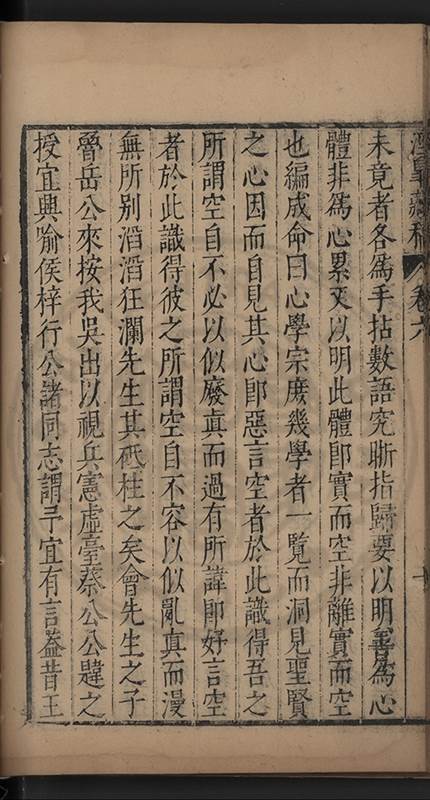 涇皐藏稿 卷六
未竟者各爲手拈數語究晰指歸要以明善爲心
體非爲心累又以明此體卽實而空非離實而空
也編成命曰心學宗庶幾學者一覽而洞見聖賢
之心因而自見其心卽惡言空者於此識得吾之
所謂空自不必以似廢真而過有所諱卽好言空
者於此識得彼之所謂空自不容以似亂真而漫
無所别滔滔狂瀾先生其砥柱之矣會先生之子
魯岳公來按我吳出以視兵憲虛臺蔡公公韙之
授宜興喻侯梓行公諸同志謂予宜有言葢昔王